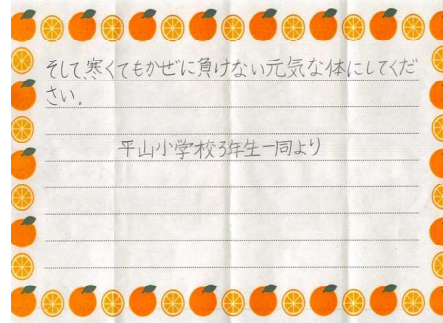 そして、寒くてもかぜに負けない元気な体にしてくだ
さい。
平山小学校3年生一同より